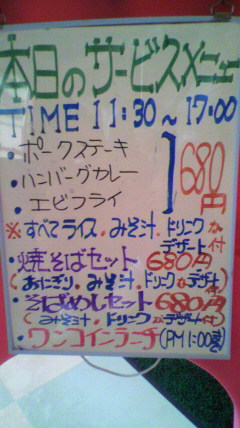 本日のサービスメニュー
TIME 11:30～17:00
・ポークステーキ
・ハンバーグカレー
・エビフライ
680円
※すべてライス・みそ汁・ドリンク
デザート付
・焼そばセット 680円
(おにぎり・みそ汁・ドリンク・デザート付)
・そばめしセット 680円
(みそ汁・ドリンク・デザート付)
・ワンコインランチ(PM1:00まで)